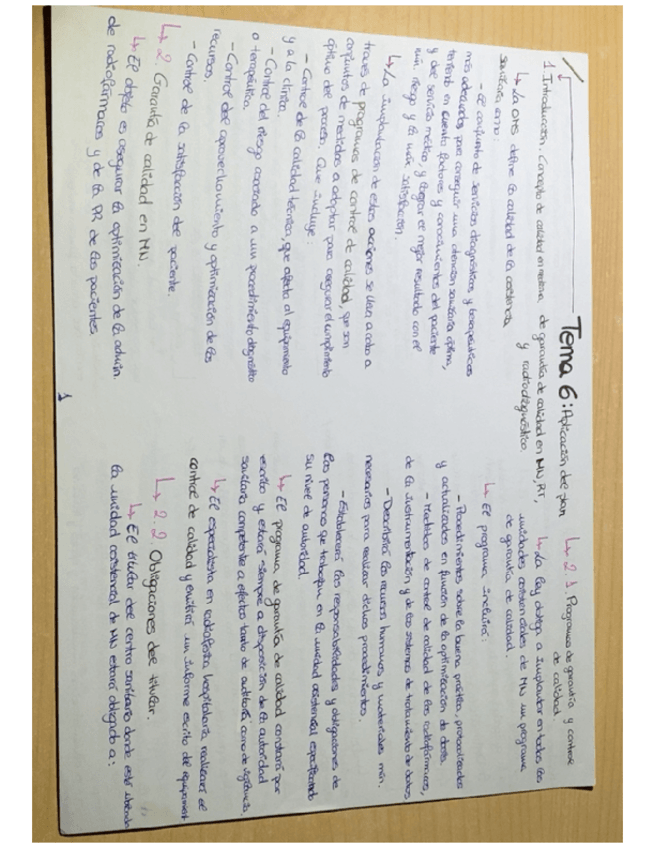 Tema 6: Aplicación del plan
de garantía de calidad en MN, RT,
y radiodiagnóstico.
1. Introducción, Concepto de calidad en medicina
↳ La OMS define la calidad de la asistencia
sanitaria como:
- el conjunto de servicios diagnósticos y terapéuticos
más adecuados para conseguir una atención sanitaria óptima,
teniendo en cuenta factores y conocimientos del paciente
y del servicio médico, y lograr el mejor resultado con el
mín. riesgo y la máx. satisfacción.
↳ La implantación de estas acciones se lleva a cabo a
través de programas de control de calidad, que son
conjuntos de medidas a adoptar para asegurar el cumplimiento
óptimo del proceso. Que incluye:
- Control de la calidad técnica, que afecta al equipamiento
y a la clínica.
- Control del riesgo asociado a un procedimiento diagnóstico
o terapéutico.
- Control del aprovechamiento y optimización de los
recursos.
- Control de la satisfacción del paciente.
↳ 2. Garantía de calidad en MN.
↳ El objeto es asegurar la optimización de la admin.
de radiofármacos y de la PR de los pacientes.
1
↳ 2.1. Programa de garantía y control
de calidad.
↳ La ley obliga a implantar en todas las
unidades asistenciales de MN un programa
de garantía de calidad.
↳ El programa incluirá:
- Procedimientos sobre la buena práctica, protocolizados
y actualizados en función de la optimización de dosis.
- Medidas de control de calidad de los radiofármacos,
de la instrumentación y de los sistemas de tratamiento de datos
- Describirá los recursos humanos y materiales mín.
necesarios para realizar dichos procedimientos.
- Establecerá las responsabilidades y obligaciones de
las personas que trabajan en la unidad asistencial especificando
su nivel de autoridad.
↳ El programa de garantía de calidad constará por
escrito y estará siempre a disposición de la autoridad
sanitaria competente a efectos tanto de auditoría como de vigilancia.
↳ El especialista en radiofísica hospitalaria realizará el
control de calidad y emitirá un informe escrito del equipamient
↳ 2.2 Obligaciones del titular.
↳ El titular del centro sanitario donde esté ubicada
la unidad asistencial de MN estará obligado a: